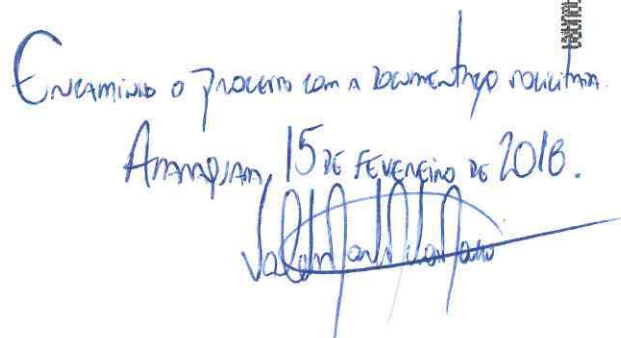 Encaminho o processo com a documentação solicitada.
Araraquara, 15 de fevereiro de 2016.